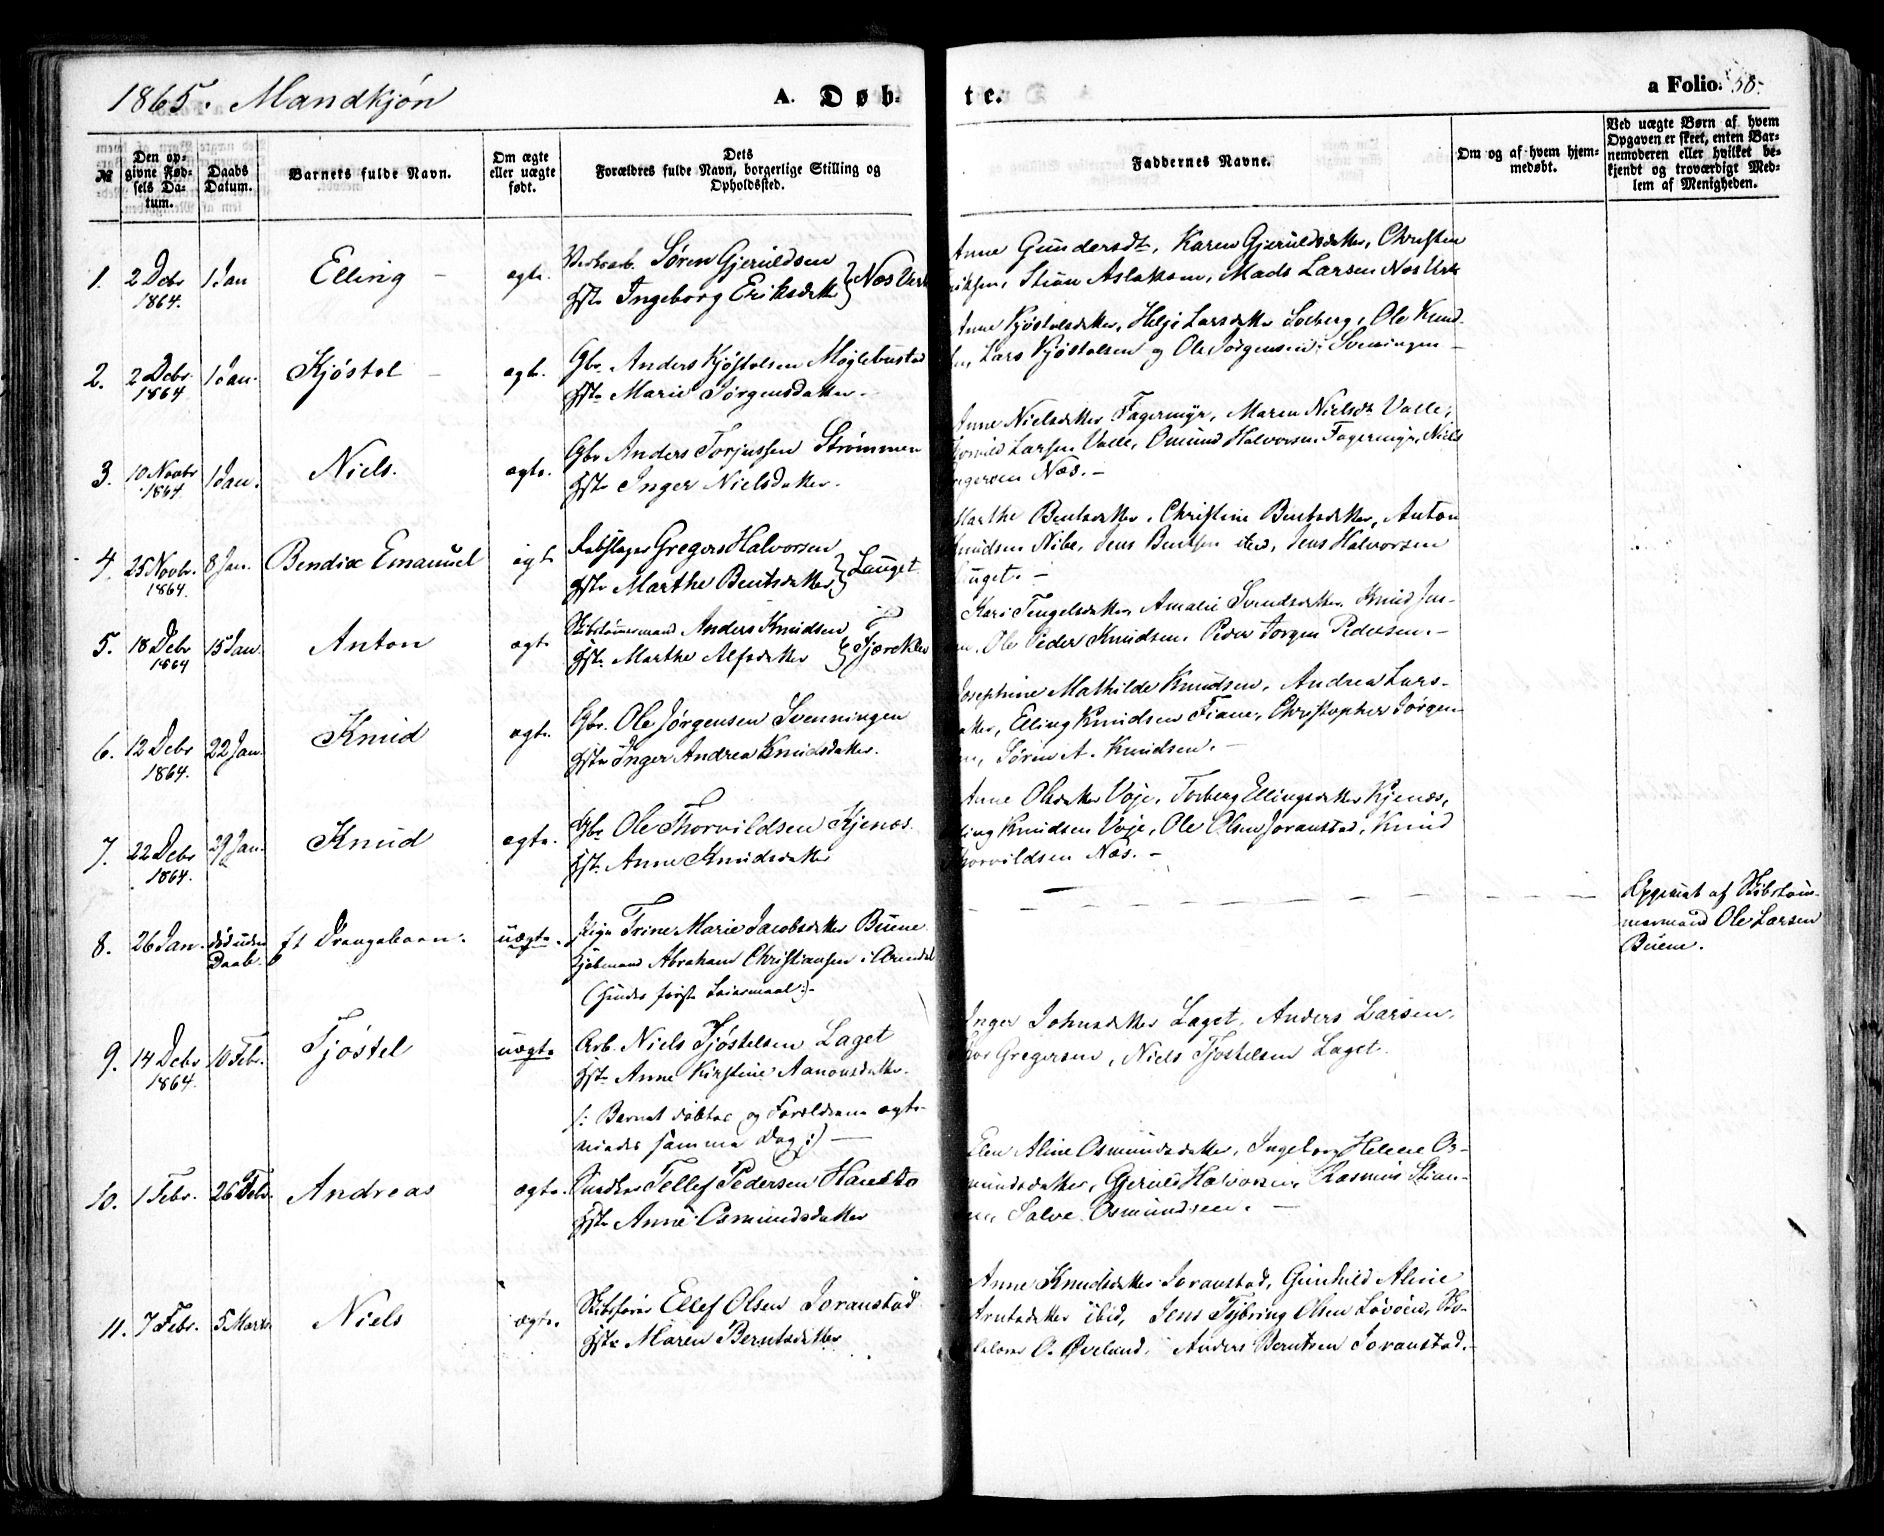 1865. Mandkjøn
A. Døb-
te.
a Folio. 58.
№
Den op-
givne Fød-
sels Da-
tum.
Daabs
Datum.
Barnets fulde Navn.
Om ægte
eller uægte
født.
Dets
Forældres fulde Navn, borgerlige Stilling og
Opholdssted.
Faddernes Navne.
Om og af hvem hjem-
medøbt.
Ved uægte Børn af hvem
Opgaven er skeet, enten Bar-
nemoderen eller hvilket be-
kjendt og troværdigt Med-
lem af Menigheden.
1. 2 Debr 1 Jan Elling – ægte. Søren Gjeruldsen
1864. Hst. Ingeborg Eriksdatter } Næs Værk
Anne Gundersdt, Karen Gjeruldsdatter, Christen
Stian Aslaksen, Mads Larsen Næs Værk
2. 2 Debr 1 Jan. Kjøstel – ægte. Gbr. Anders Kjøstelsen Møglebustad
1864 Hst. Marie Jørgensdatter.
Anne Kjøstelsdatter, Helje Larsdatter Solberg, Ole Knud-
Lars Kjøstelsen og Ole Jørgensen Svenningen –
3. 10 Novbr 1 Jan. Niels. ægte. Gbr Anders Torjussen Strømmen
1864 Hst. Inger Nielsdatter.
Anne Nielsdatter Fagermyr, Maren Nielsdt Valle,
Larsen Valle, Omund Halvorsen Fagermyr, Niels
Næs. –
4. 25 Novbr. 8 Jan. Bendix Emanuel ægte Rebslager Gregers Halvorsen
1864. Hst. Marthe Bentsdatter } Lauget
Marthe Bentsdatter, Christine Bentsdatter, Anton
Knudsen Nibe, Jens Bentsen ibid, Jens Halvorsen
Lauget. –
5. 18 Debr 15 Jan. Anton ægte Skibstømmermand Anders Knudsen
1864 Hst. Marthe Alfsdatter
Kari Tengelsdatter, Amalie Svendsdatter, Knud Jen-
Ole Peder Knudsen, Peder Jørgen Pedersen. –
6. 12 Debr 22 Jan. Knud ægte. Gbr. Ole Jørgensen Svenningen
1864. Hst. Inger Andrea Knudsdatter.
Josephine Mathilde Knudsen, Andrea Lars-
datter, Elling Knudsen Fiane, Christopher Jørgen-
sen, Søren A. Knudsen. –
7. 22 Debr 29 Jan. Knud ægte. Gbr Ole Thorvildsen Kjenæs.
1864. Hst. Anne Knudsdatter
Anne Olsdatter Voje, Torberg Ellingsdatter Kjenæs,
Elling Knudsen Voje, Ole Olsen Joranstad, Knud
Thorvildsen Næs. –
8. 26 Jan. død uden Daab. Drengebarn. uægte. Pige Trine Marie Jacobsdatter Buene
Kjøbmand Abraham Christiansen i Arendal
(hendes første Leiermaal:)-
Opgivet af Skibstøm-
mermand Ole Larsen
Buene.
9. 14 Debr 10 Febr. Tjøstel uægte Arb. Niels Tjøstelsen Laget
1864. Hst. Anne Kirstine Aanonsdatter.
/: Barnet døbtes og Forældrene ægte-
viedes samme Dag :) –
Inger Johnsdatter Laget, Anders Larsen,
Gregersen, Niels Tjøstelsen Laget.
10. 1 Febr. 26 Febr. Andreas ægte. Tellef Pedersen
Hst. Anne Osmundsdatter
Elen Aline Osmundsdatter, Ingeborg Helene Os-
mundsdatter, Gjeruld Halvorsen, Rasmus Stian-
sen, Salve Osmundsen. –
11. 7 Febr. 5 Marts Niels ægte. Skibsfører Ellef Olsen Joranstad
Hst. Maren Berntsdatter
Anne Knudsdatter Joranstad, Gunhild Aline
Arntsdatter ibid, Jens Tybring Olsen Løvøen, Sko-
lelærer O. Øveland, Anders Berntsen Joranstad. –